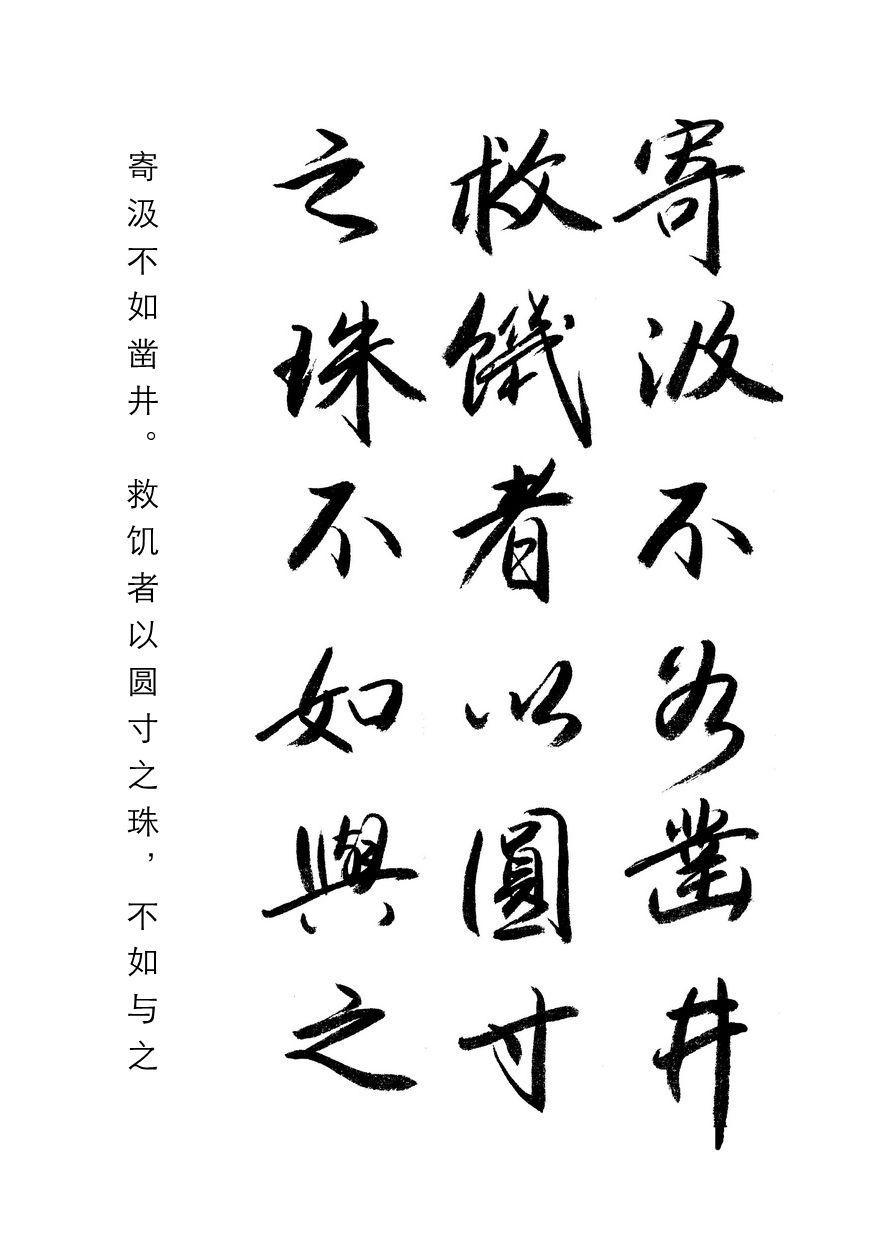 寄汲不如凿井
救饑者以圓寸
之珠不如與之
寄汲不如凿井。救饥者以圆寸之珠，不如与之